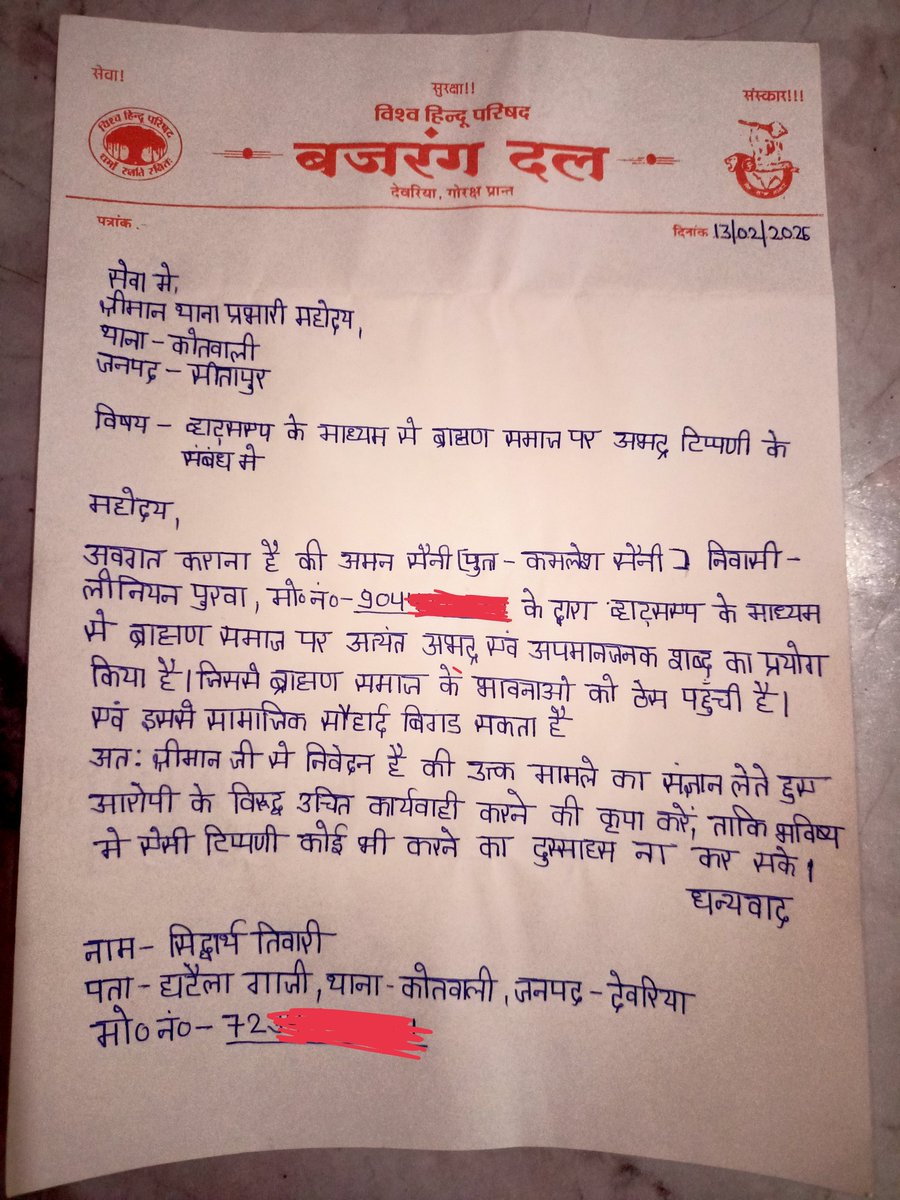 सेवा!
सुरक्षा!!
संस्कार!!!
विश्व हिन्दू परिषद
बजरंग दल
देवरिया, गोरक्ष प्रान्त
विश्व हिन्दू परिषद
धर्मो रक्षति रक्षितः
पत्रांक.-
दिनांक 13/02/2026
सेवा मे,
श्रीमान थाना प्रभारी महोदय,
थाना - कोतवाली
जनपद - सीतापुर
विषय - व्हाट्सएप के माध्यम से ब्राह्मण समाज पर अभद्र टिप्पणी के
संबंध मे
महोदय,
अवगत कराना है की अमन सैनी [पुत्र - कमलेश सैनी] निवासी -
लीनियन पुरवा, मो०नं०- 904 के द्वारा व्हाट्सएप के माध्यम
से ब्राह्मण समाज पर अत्यंत अभद्र एवं अपमानजनक शब्द का प्रयोग
किया है। जिससे ब्राह्मण समाज के भावनाओ को ठेस पहुँची है।
एवं इससे सामाजिक सौहार्द बिगड सकता है
अत: श्रीमान जी से निवेदन है की उक्त मामले का संज्ञान लेते हुए
आरोपी के विरुद्ध उचित कार्यवाही करने की कृपा करें, ताकि भविष्य
मे ऐसी टिप्पणी कोई भी करने का दुस्साहस ना कर सके।
धन्यवाद
नाम - सिद्धार्थ तिवारी
पता - घटैला गाजी, थाना - कोतवाली, जनपद - देवरिया
मो० नं०- 723